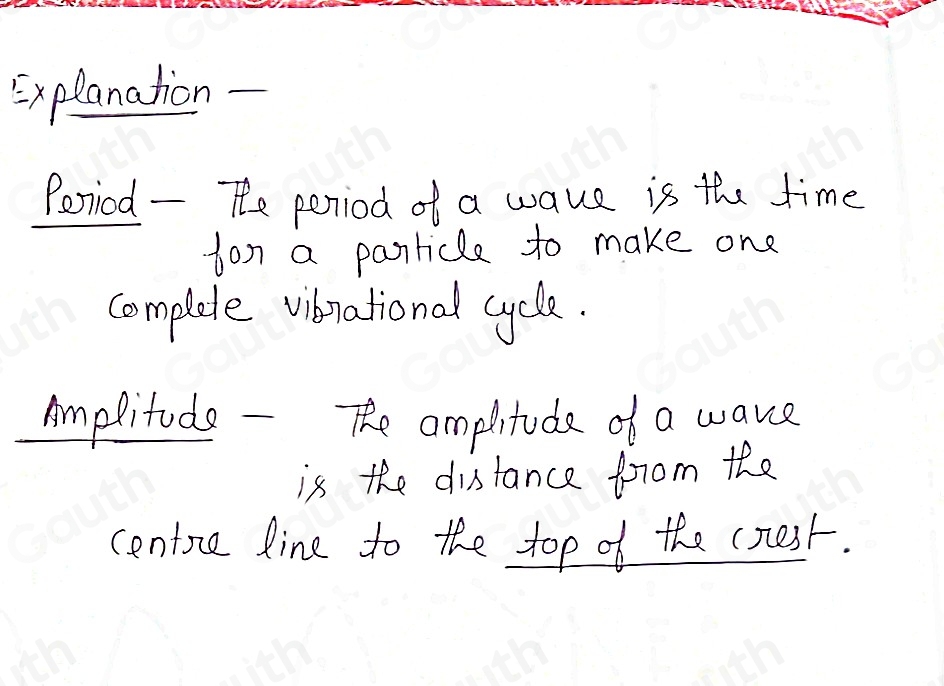 Explanation —
Period — The period of a wave is the time
for a particle to make one
complete vibrational cycle.
Amplitude — The amplitude of a wave
is the distance from the
centre line to the top of the crest.
Gauth